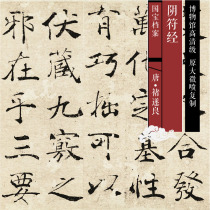 博物馆高清线·原大微喷复制
阴符经
国宝档案
唐·褚遂良
合發
基性
有巧拙可以
伏藏九竅之
邪在乎三要